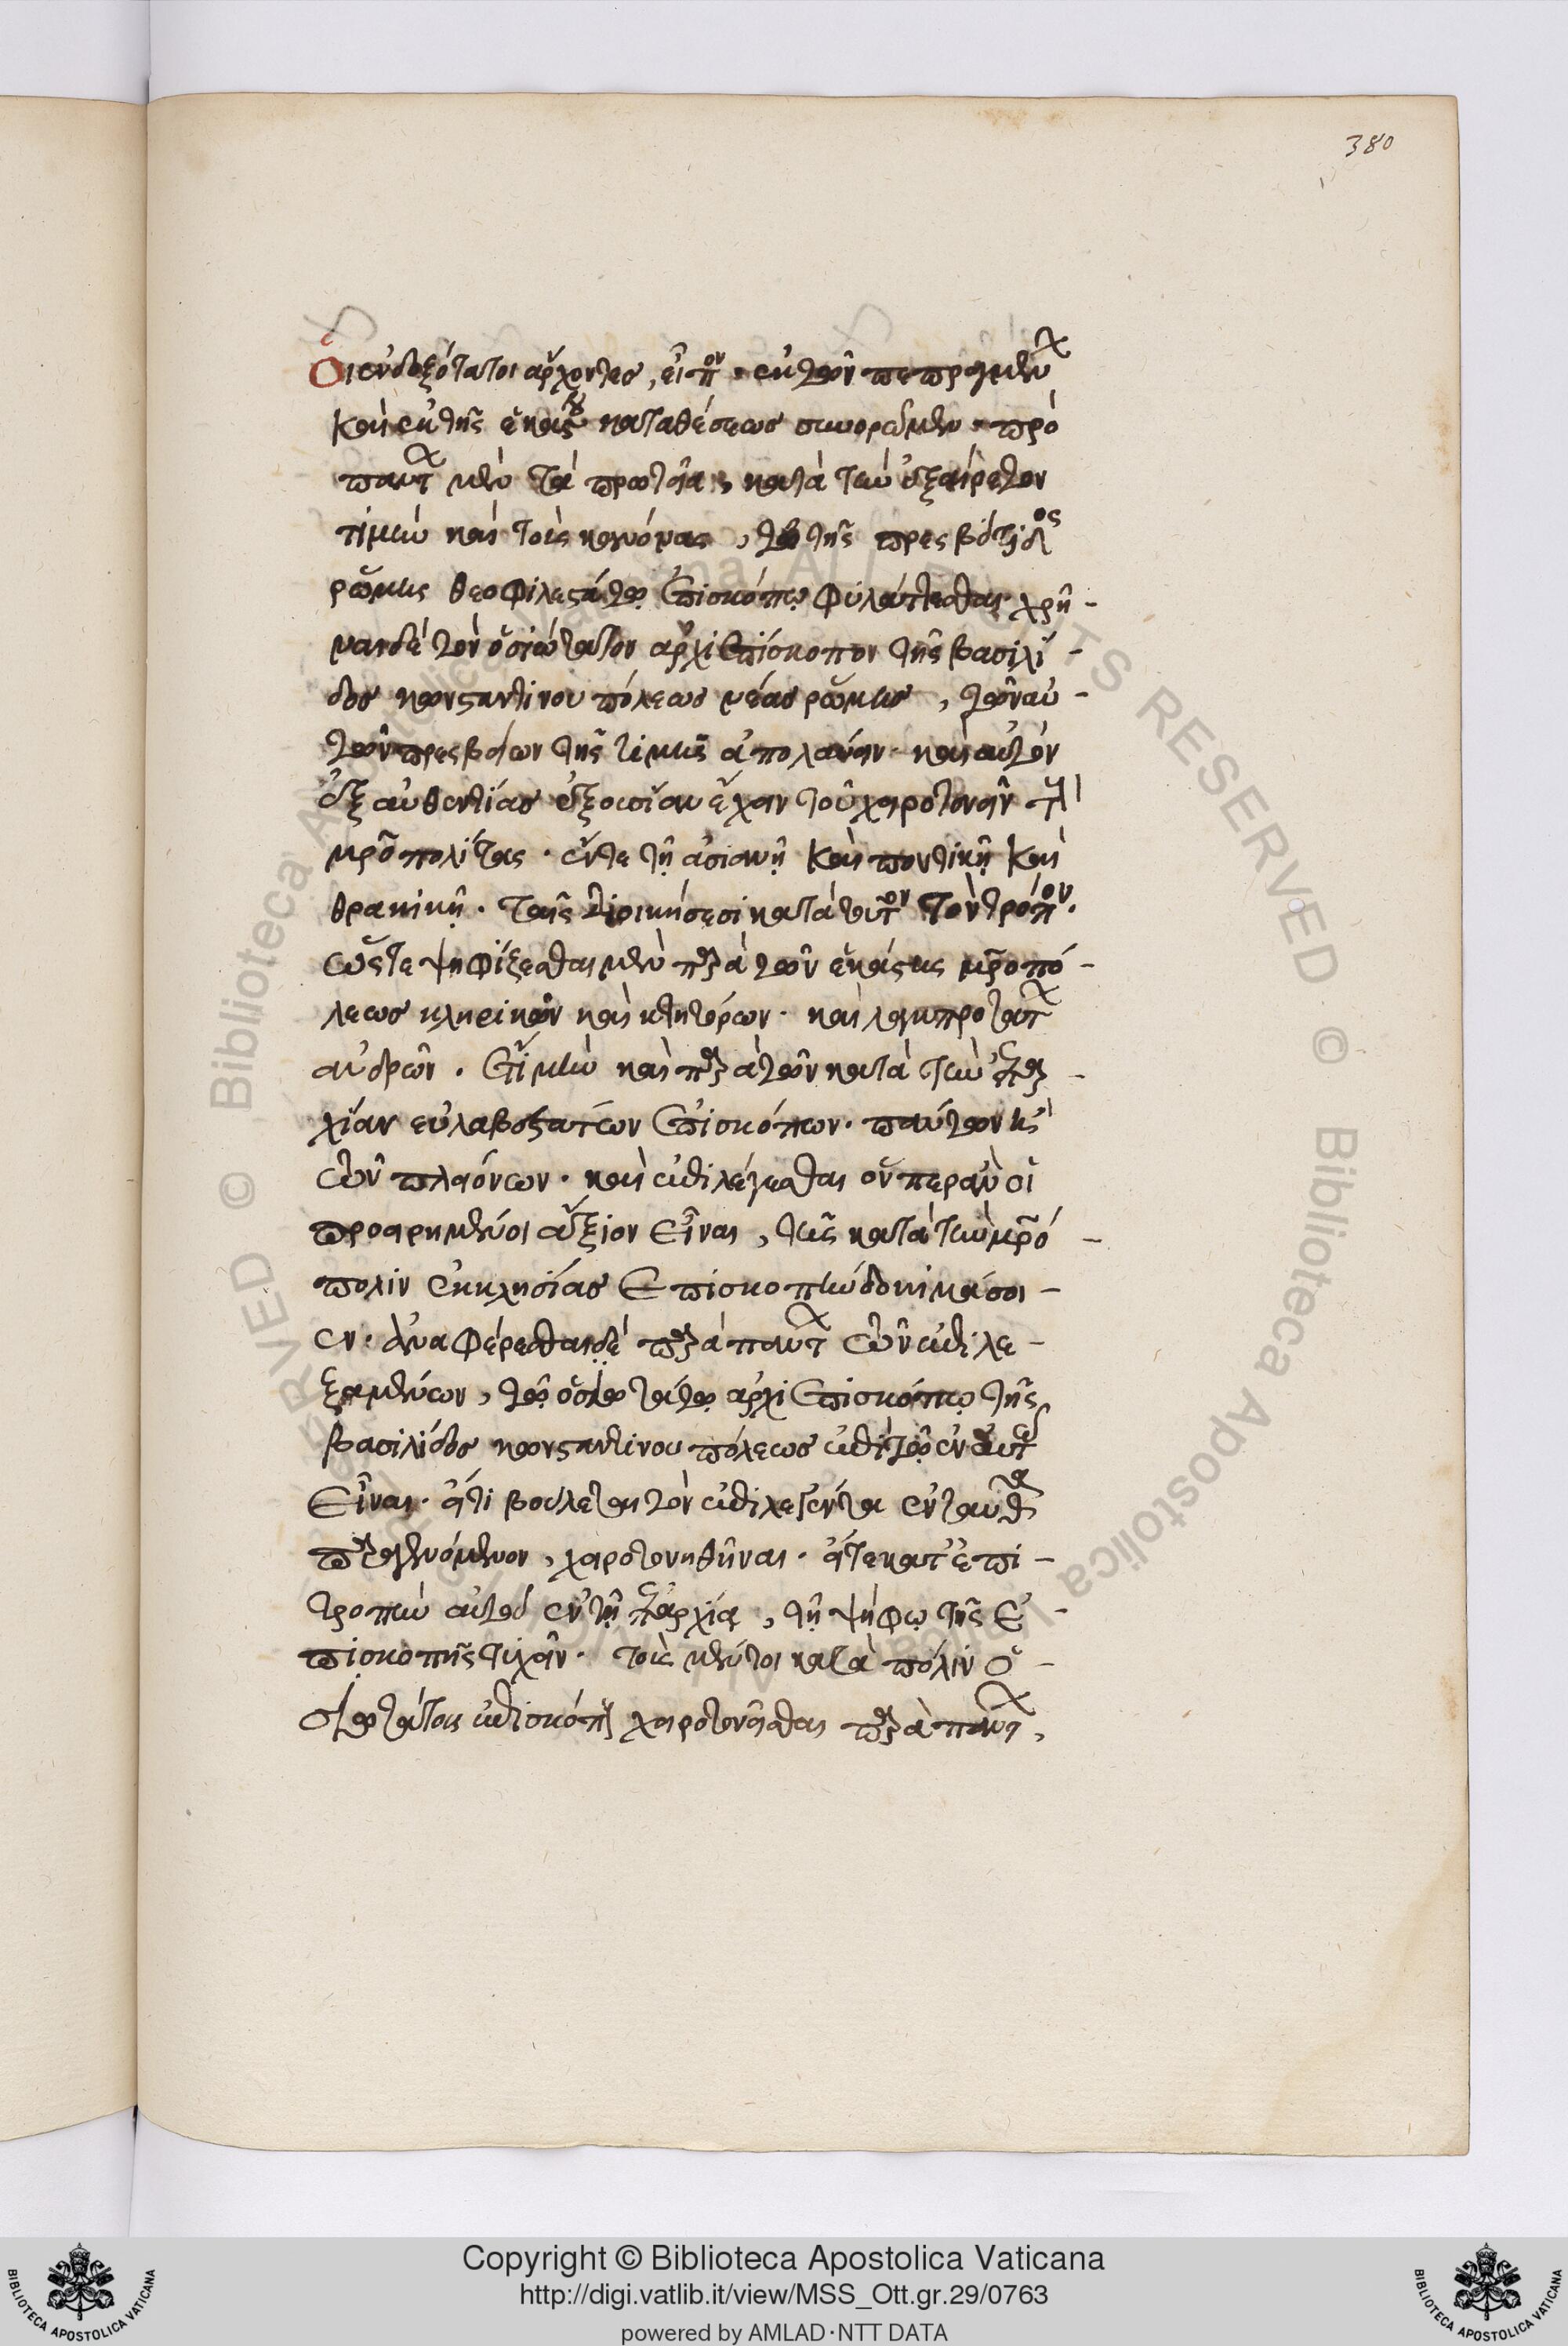 380
Οἱ ἐνδοξότατοι ἄρχοντες, εἶπον · ἐκ τῶν πεπραγμένων
καὶ ἐκ τῆς ἑκάστου καταθέσεως συνορῶμεν · πρὸ
πάντων μὲν τὰ πρωτεῖα, κατὰ τὴν ἐξαίρετον
τιμὴν καὶ τοὺς κανόνας, τῶ τῆς πρεσβύτιδος
ῥώμης θεοφιλεστάτω ἐπισκόπω φυλάττεσθαι· χρῆ-
ναι δὲ τὸν ὁσιώτατον ἀρχιεπίσκοπον τῆς βασιλί-
δος κωνσταντινουπόλεως νέας ῥώμης, τῶν αὐ-
τῶν πρεσβείων τῆς τιμῆς ἀπολαύειν· καὶ αὐτὸν
ἐξ αὐθεντίας ἐξουσίαν ἔχειν τοῦ χειροτονεῖν τοὺς
μητροπολίτας · ἔν τε τῆ ἀσιανῆ καὶ ποντικῆ καὶ
θρακικῆ · ταῖς διοικήσεσι κατὰ τοῦτον τὸν τρόπον.
ὥστε ψηφίζεσθαι μὲν παρὰ τῶν ἑκάστης μητροπό-
λεως κληρικῶν καὶ κτητόρων · καὶ λαμπροτάτων
ἀνδρῶν · ἔτι μὴν καὶ παρὰ τῶν κατὰ τὴν ἐπαρ-
χίαν εὐλαβεστάτων ἐπισκόπων · πάντων ἢ
τῶν πλειόνων · καὶ ἐπιλέγεσθαι ὅνπερ ἂν οἱ
προειρημένοι ἄξιον εἶναι, τῆς κατὰ τὴν μητρό-
πολιν ἐκκλησίας ἐπίσκοπον δοκιμάσοι-
εν · ἀναφέρεσθαι δὲ παρὰ πάντων τῶν ἐπιλε-
ξαμένων, τῶ ὁσιωτάτω ἀρχιεπισκόπω τῆς
βασιλίδος κωνσταντινουπόλεως ἐπὶ τῶ ἐν αὐτῶ
εἶναι · εἴτε βούλεται τὸν ἐπιλεγέντα ἐνταῦθα
παραγενόμενον, χειροτονηθῆναι · εἴτε κατ' ἐπι-
τροπὴν αὐτοῦ ἐν τῆ ἐπαρχία, τῆ ψήφω τῆς ἐ-
πισκοπῆς τυχεῖν · τοὺς μέντοι κατὰ πόλιν ὁ-
σιωτάτους ἐπισκόπους χειροτονεῖσθαι παρὰ πάντων,
Copyright © Biblioteca Apostolica Vaticana
http://digi.vatlib.it/view/MSS_Ott.gr.29/0763
powered by AMLAD·NTT DATA